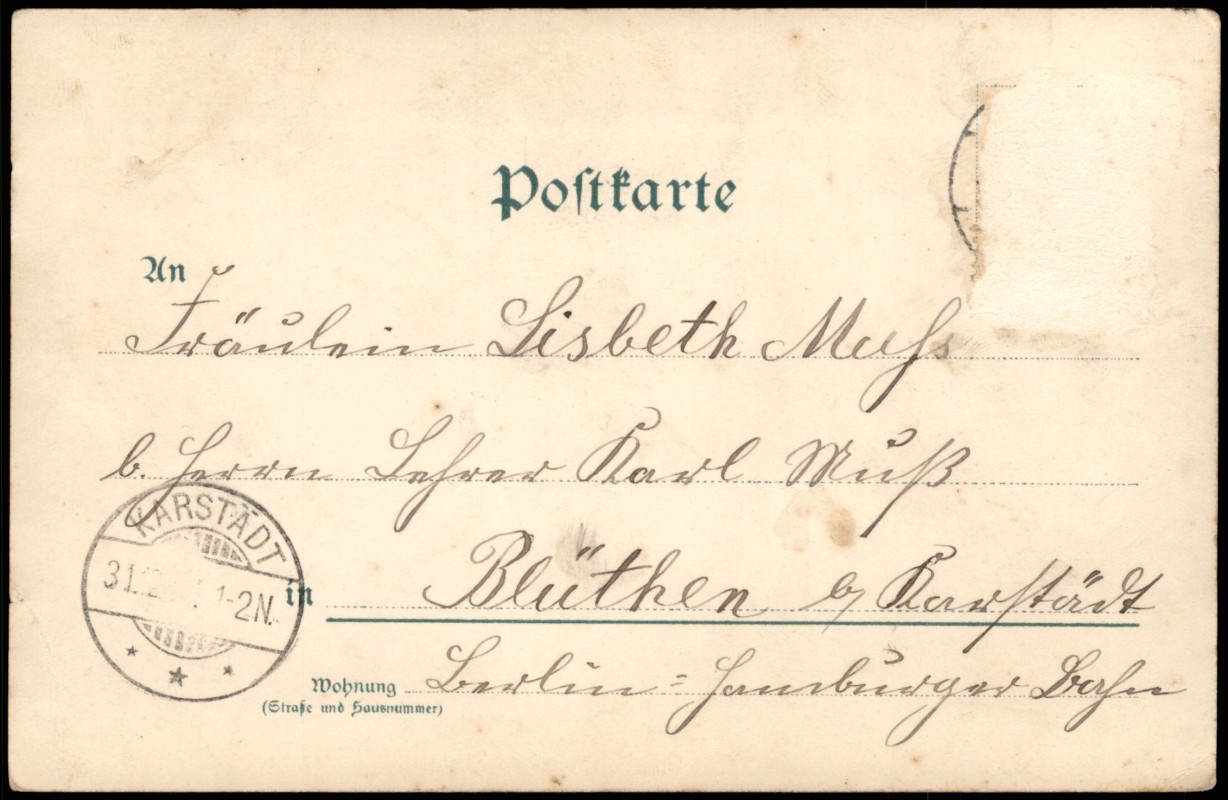 Postkarte
An
Fräulein Lisbeth Muhs
b. Herrn Lehrer Karl Muß
KARSTÄDT
31.12. 1-2N.
in Blüthen b/ Karstädt
Wohnung Berlin-Hamburger Bahn
(Straße und Hausnummer)